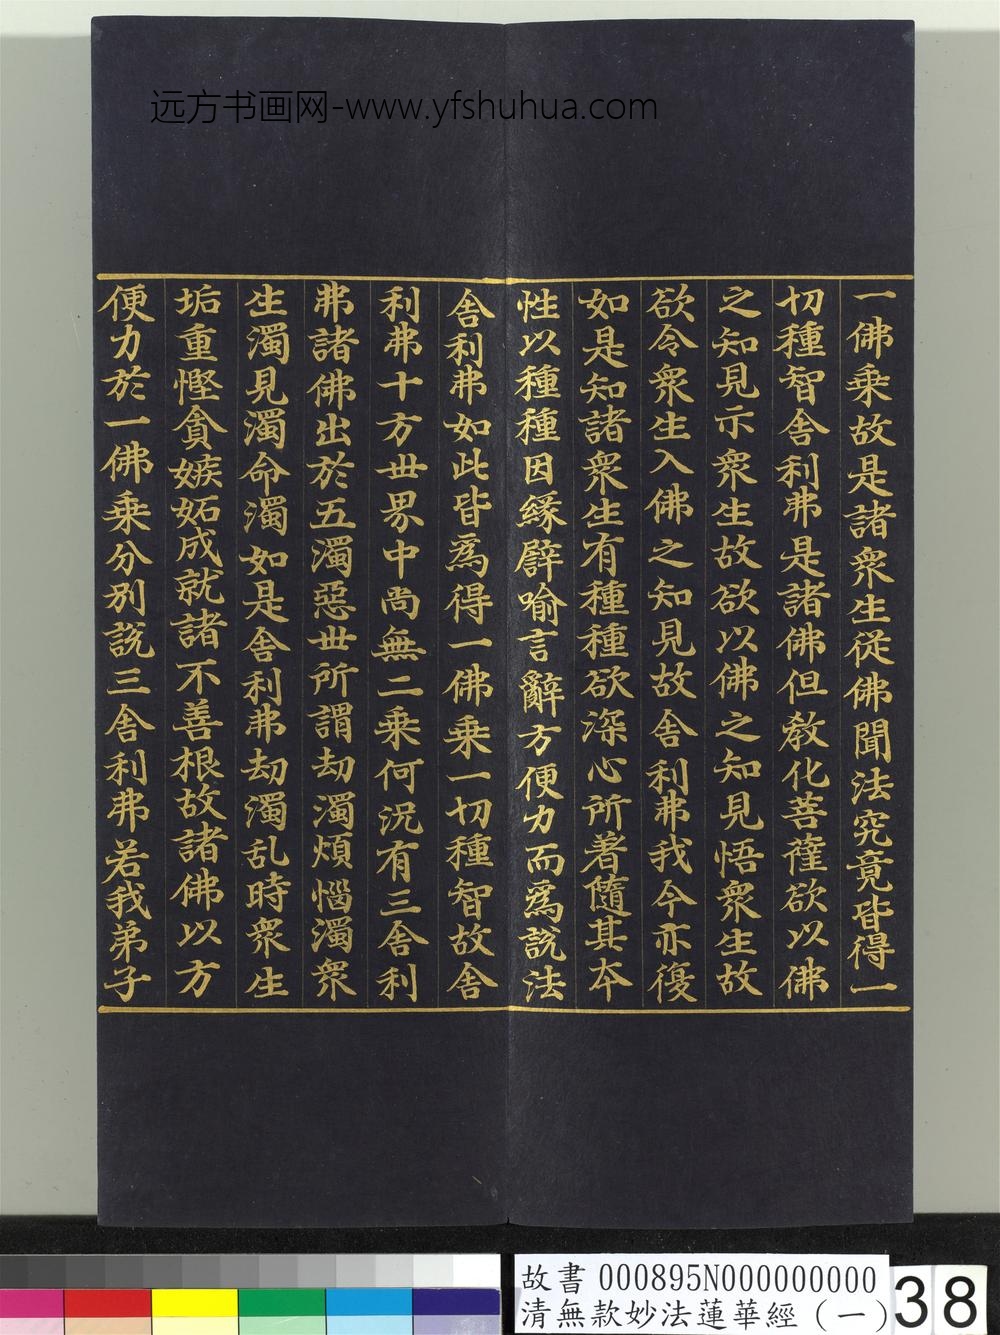 远方书画网-www.yfshuhua.com
一佛乗故是諸衆生從佛聞法究竟皆得一
切種智舎利弗是諸佛但教化菩薩欲以佛
之知見示衆生故欲以佛之知見悟衆生故
欲令衆生入佛之知見故舎利弗我今亦復
如是知諸衆生有種種欲深心所著隨其本
性以種種因緣譬喻言辭方便力而爲說法
舎利弗如此皆爲得一佛乗一切種智故舎
利弗十方世界中尚無二乗何況有三舎利
弗諸佛出於五濁惡世所謂劫濁煩惱濁衆
生濁見濁命濁如是舎利弗劫濁乱時衆生
垢重慳貪嫉妬成就諸不善根故諸佛以方
便力於一佛乗分別說三舎利弗若我弟子
故書 000895N000000000
清無款妙法蓮華經（一）
38